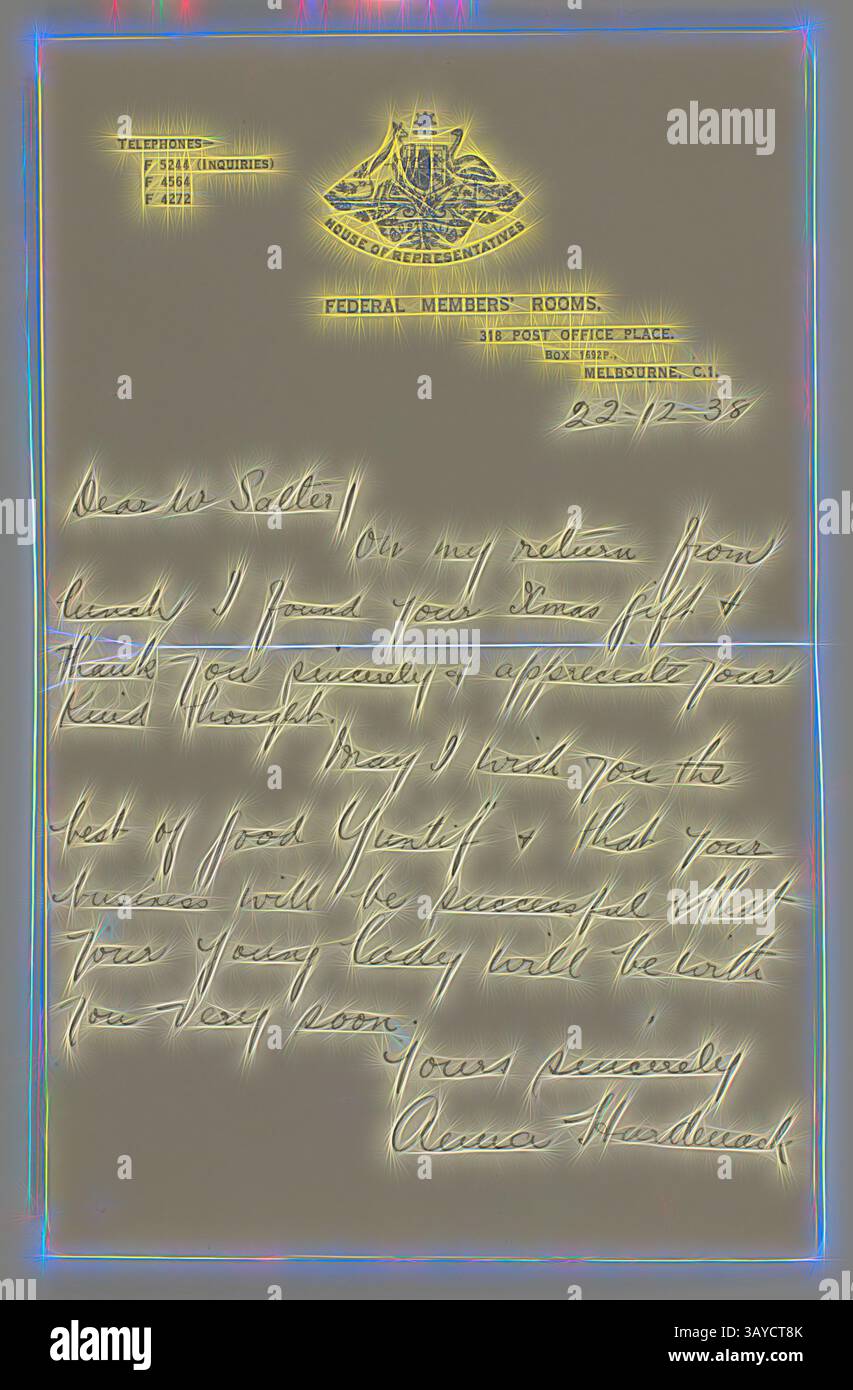 TELEPHONES
F 5244 (INQUIRIES)
F 4564
F 4272
AUSTRALIA
HOUSE OF REPRESENTATIVES
FEDERAL MEMBERS' ROOMS,
318 POST OFFICE PLACE.
BOX 1692P.,
MELBOURNE, C.1.
22-12-38
Dear Mr Salter/
On my return from
lunch I found your Xmas gift &
thank you sincerely & appreciate your
kind thought.
May I wish you the
best of good "Yuntif" & that your
business will be successful & that
your young lady will be with
you very soon.
Yours sincerely
Anna
alamy
Image ID: 3AYCT8K
www.alamy.com